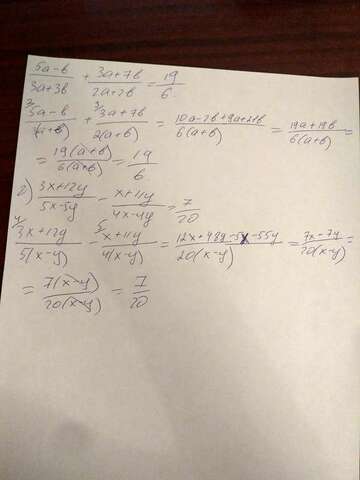 (5a-в)/(3a+3в) + (3a+7в)/(2a+2в) = 19/6
²⁾(5a-в)/3(a+в) + ³⁾(3a+7в)/2(a+в) = (10a-2в+9a+21в)/6(a+в) = (19a+19в)/6(a+в) =
= 19(a+в)/6(a+в) = 19/6
г) (3x+12y)/(5x-5y) - (x+11y)/(4x-4y) = 7/20
⁴⁾(3x+12y)/5(x-y) - ⁵⁾(x+11y)/4(x-y) = (12x+48y-5x-55y)/20(x-y) = (7x-7y)/20(x-y) =
= 7(x-y)/20(x-y) = 7/20